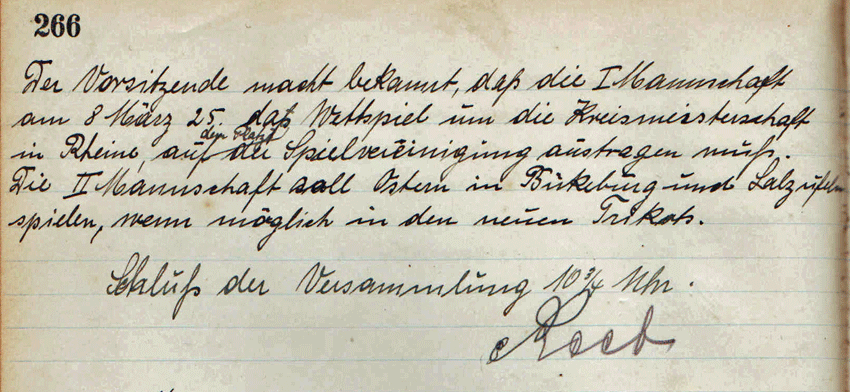 266
Der Vorsitzende macht bekannt, daß die I Mannschaft
am 8 März 25. daß Wettspiel um die Kreismeisterschaft
dem Platz
in Rheine, auf die Spielvereinigung austragen muß.
Die II Mannschaft soll Ostern in Bükeburg und Salzufeln
spielen, wenn möglich in den neuen Trikots.
Schluß der Versammlung 10 3/4 Uhr.